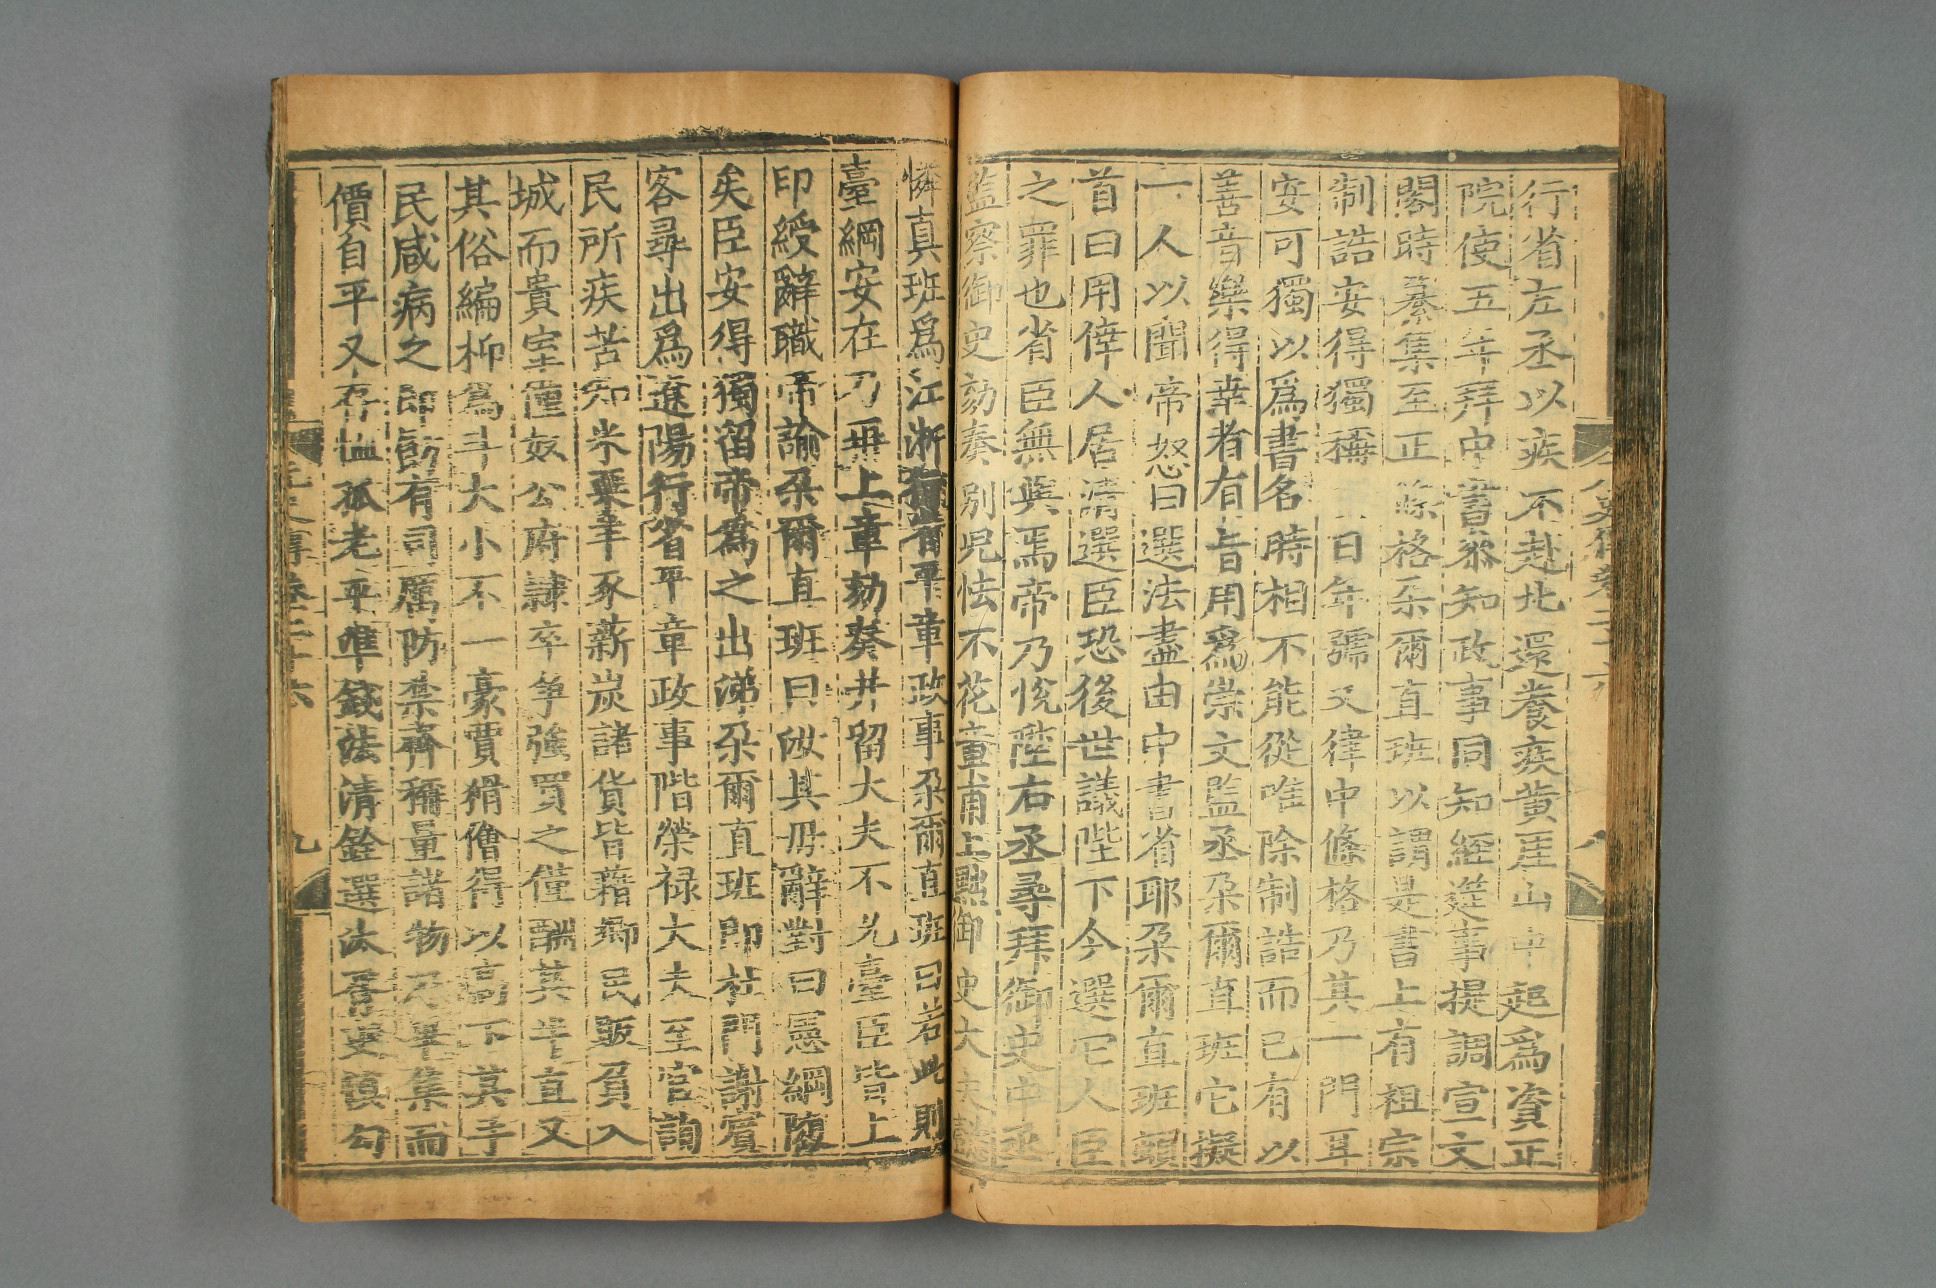 行省左丞以疾不赴北還養疾黃厓山中起爲資正
院使五年拜中書參知政事同知經筵事提調宣文
閣時纂集至正條格朶爾直班以謂是書上有祖宗
制誥安得獨稱今日年號又律中條格乃其一門耳
安可獨以爲書名時相不能從唯除制誥而已有以
善音樂得幸者有旨用爲崇文監丞朶爾直班它擬
一人以聞帝怒曰選法盡由中書省耶朶爾直班頓
首曰用倖人居清選臣恐後世議陛下今選它人臣
之罪也省臣無與焉帝乃悅陞右丞尋拜御史中丞
監察御史劾奏別兒怯不花章甫上黜御史大夫懿
憐真班爲江浙行省平章政事朶爾直班曰若此則
臺綱安在乃再上章劾奏并留大夫不允臺臣皆上
印綬辭職帝諭朶爾直班曰汝其毋辭對曰憲綱隳
矣臣安得獨留帝爲之出涕朶爾直班即杜門謝賓
客尋出爲遼陽行省平章政事階榮祿大夫至官詢
民所疾苦知米粟羊豕薪炭諸貨皆藉鄉民販負入
城而貴室僮奴公府隸卒爭強買之僅酬其半直又
其俗編柳爲斗大小不一豪賈猾儈得以高下其手
民咸病之即飭有司厲防禁齊稱量諸物乃畢集而
價自平又存恤孤老平準錢法清銓選汰胥吏慎勾
元史傳卷二十六
九